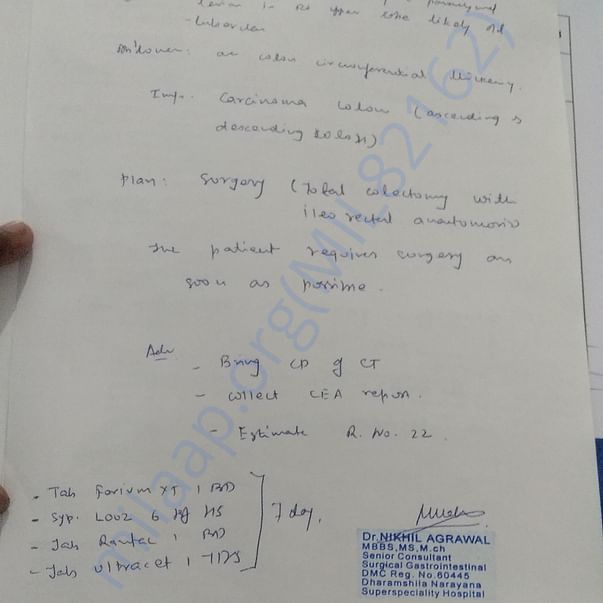 lesion in Rt upper lobe likely old
- tubercular
circumferential thickening.
Imp. Carcinoma colon (ascending &
descending colon)
Plan: Surgery (Total colectomy with
ileo rectal anastomosis
The patient requires surgery as
soon as possible.
Adv
- Bring CD of CT
- collect CEA report.
- Estimate R. No. 22.
- Tab 1 BD
- Syp. Looz 6 HS
- Tab Rantac 1 BD
- Tab Ultracet 1 TDS
7 day.
Dr. NIKHIL AGRAWAL
MBBS, MS, M.ch
Senior Consultant
Surgical Gastrointestinal
DMC Reg. No. 60445
Dharamshila Narayana
Superspeciality Hospital
milaap.org(MIL82162)